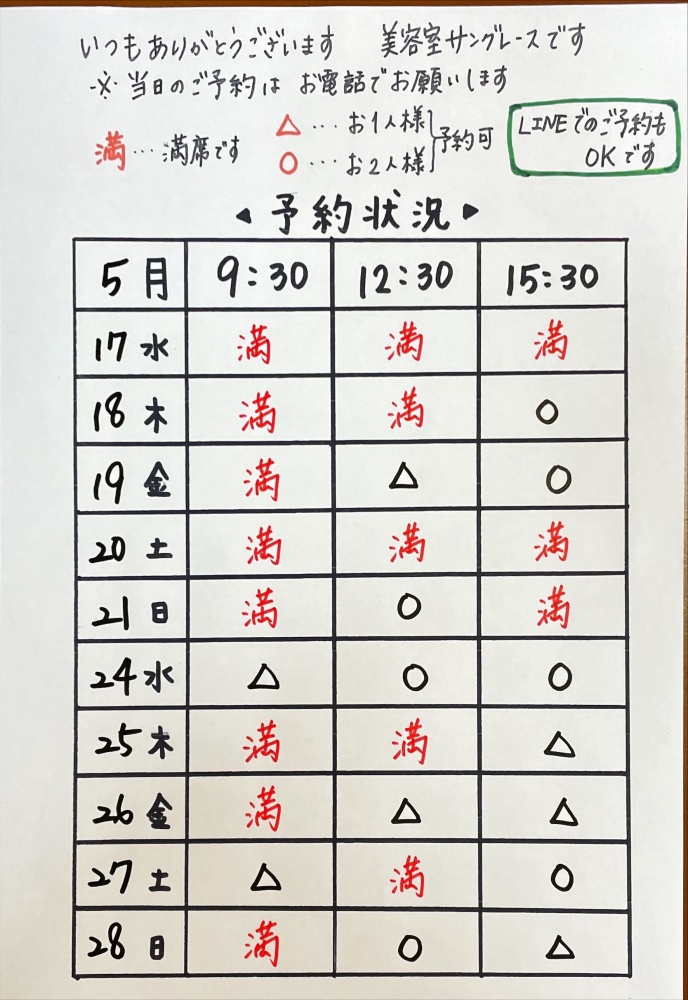 いつもありがとうございます 美容室サングレースです
※当日のご予約は お電話でお願いします
満…満席です
△…お1人様
○…お2人様
予約可
LINEでのご予約も
OKです
◀予約状況▶
5月 9:30 12:30 15:30
17水 満 満 満
18木 満 満 ○
19金 満 △ ○
20土 満 満 満
21日 満 ○ 満
24水 △ ○ ○
25木 満 満 △
26金 満 △ △
27土 △ 満 ○
28日 満 ○ △